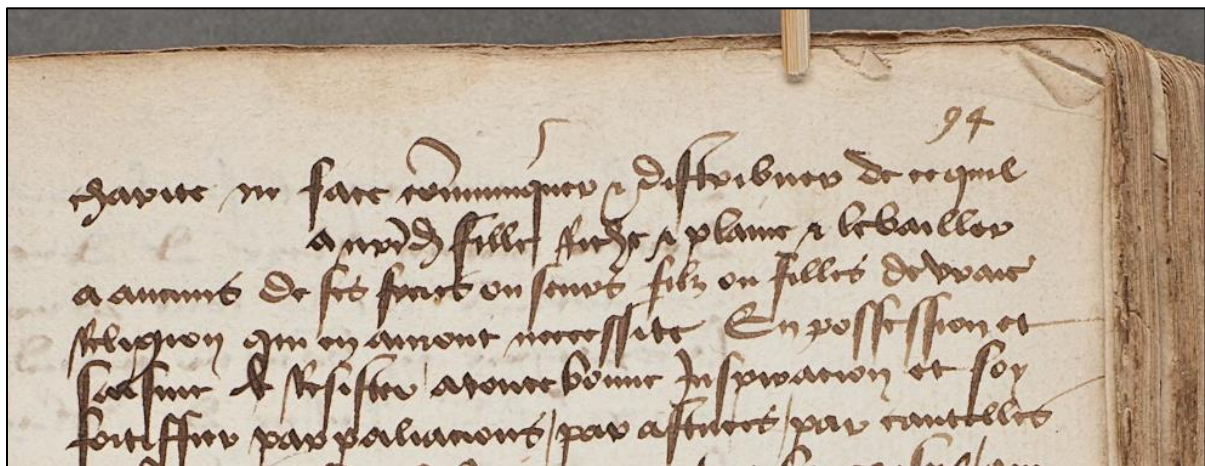 94
charite ne face cōmuniquer & distribuer de ce quil
a fille riche & plaine & le bailler
a aucuns de ses freres ou seurs filz ou filles de vraie
Religion qui en auront necessite En possession et
saisine de Resister a toute bonne Inspiracion et soy
fortiffier par paliacions / par astuces / par cautelles